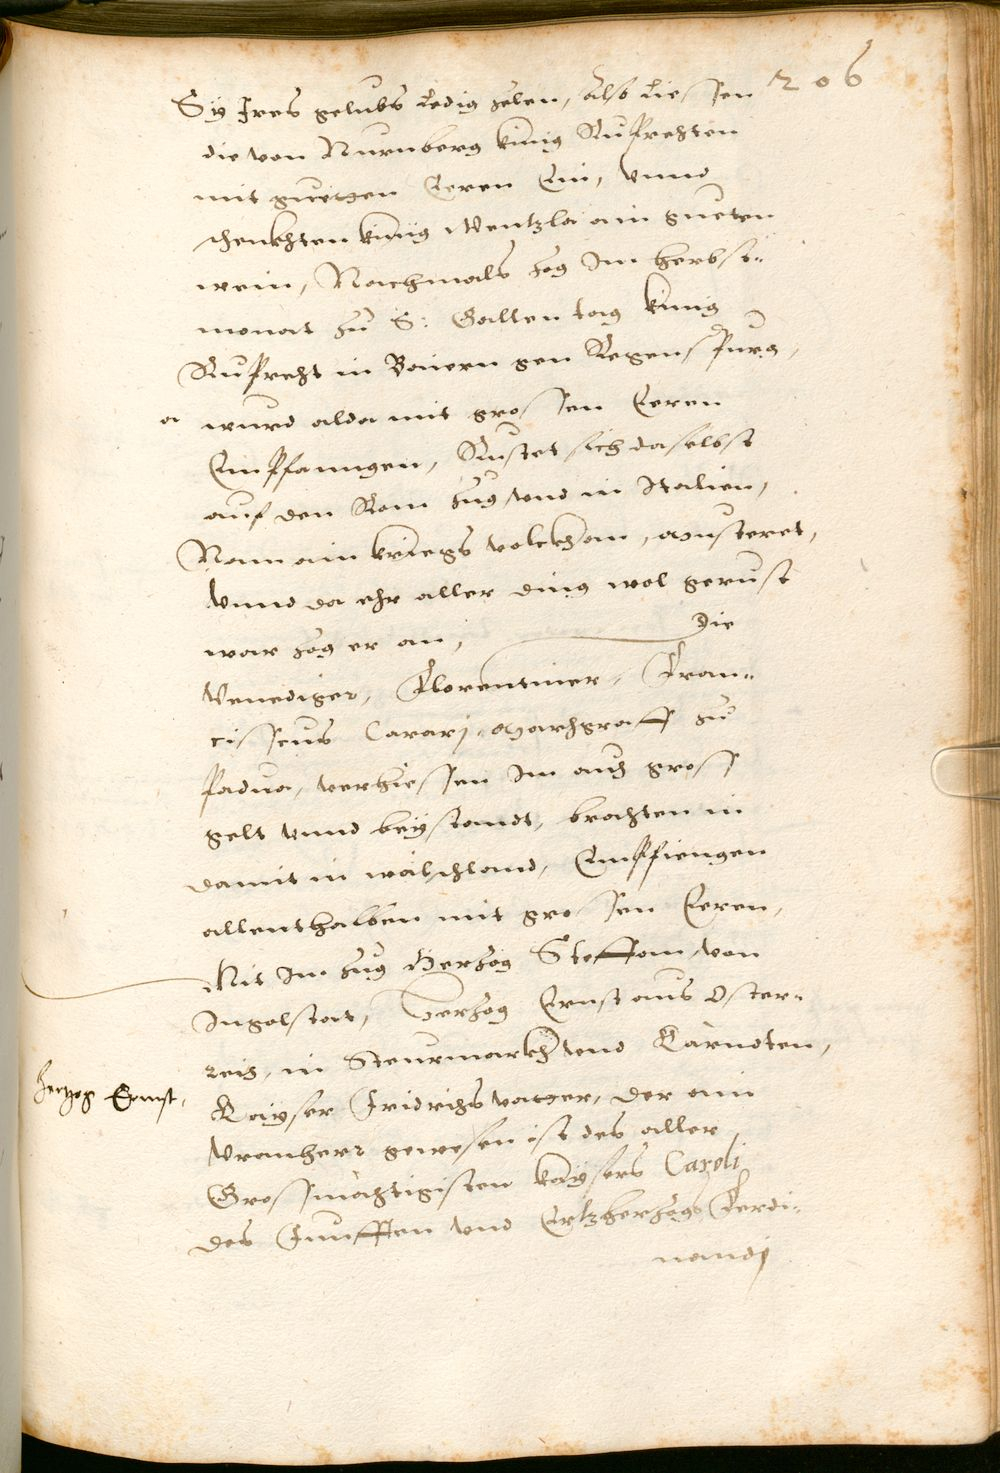 206
Sÿ Ires gelubs Ledig zelen, Also Liessen
die von Nurnberg kunig Ruprechten
mit guetten Eeren Ein, vnnd
schenckhten kunig Wentzla ain gueten
wein, Nachmals zog Im herbst-
monat zu S: Gallen tag kunig
Ruprecht in Baiern gen Regenspurg,
a wurd alda mit grossen Eeren
Empfanngen, Rustet sich daselbst
auf den Rom zug vnd in Italien,
Nam ain kriegs volckh an, mustertt,
vnnd da ehr aller ding wol gerust
war zog er an, Die
Venediger, Florentiner, Fran-
cisscus Cararj, Marchgraff zu
Padua, verhiessen Im auch gross
gelt vnnd beÿstandt, brachten in
damit in wälschland, Empfiengen
allenthalben mit grossen Eeren,
Mit Im zug Hertzog Steffam von
Ingolstat, Hertzog Ernst aus Öster-
reich, in Steurmarkh vnd Kärndten,
Hertzog Ernnst.
Kaÿser Fridrichs vatter, der ain
Vranherr gewesen ist des aller
Grossmächtigisten kaÿsers Caroli
des Funfften vnd Ertzhertzogs Ferdi-
nandj